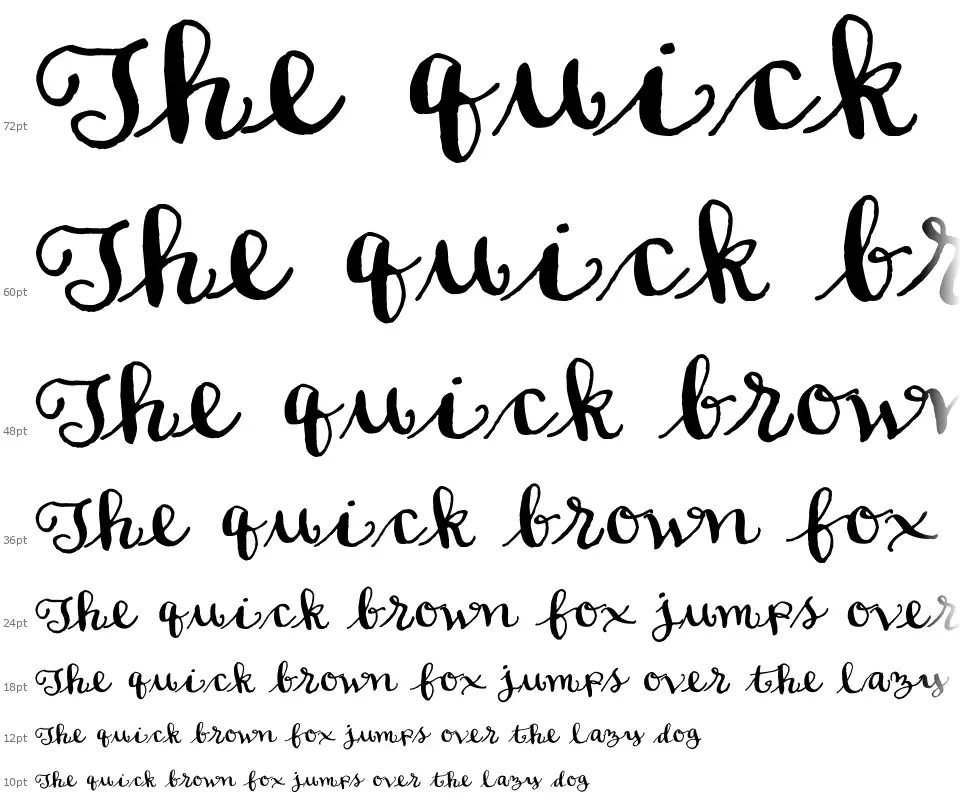 72pt The quick
60pt The quick br
48pt The quick brown
36pt The quick brown fox
24pt The quick brown fox jumps over
18pt The quick brown fox jumps over the lazy
12pt The quick brown fox jumps over the lazy dog
10pt The quick brown fox jumps over the lazy dog